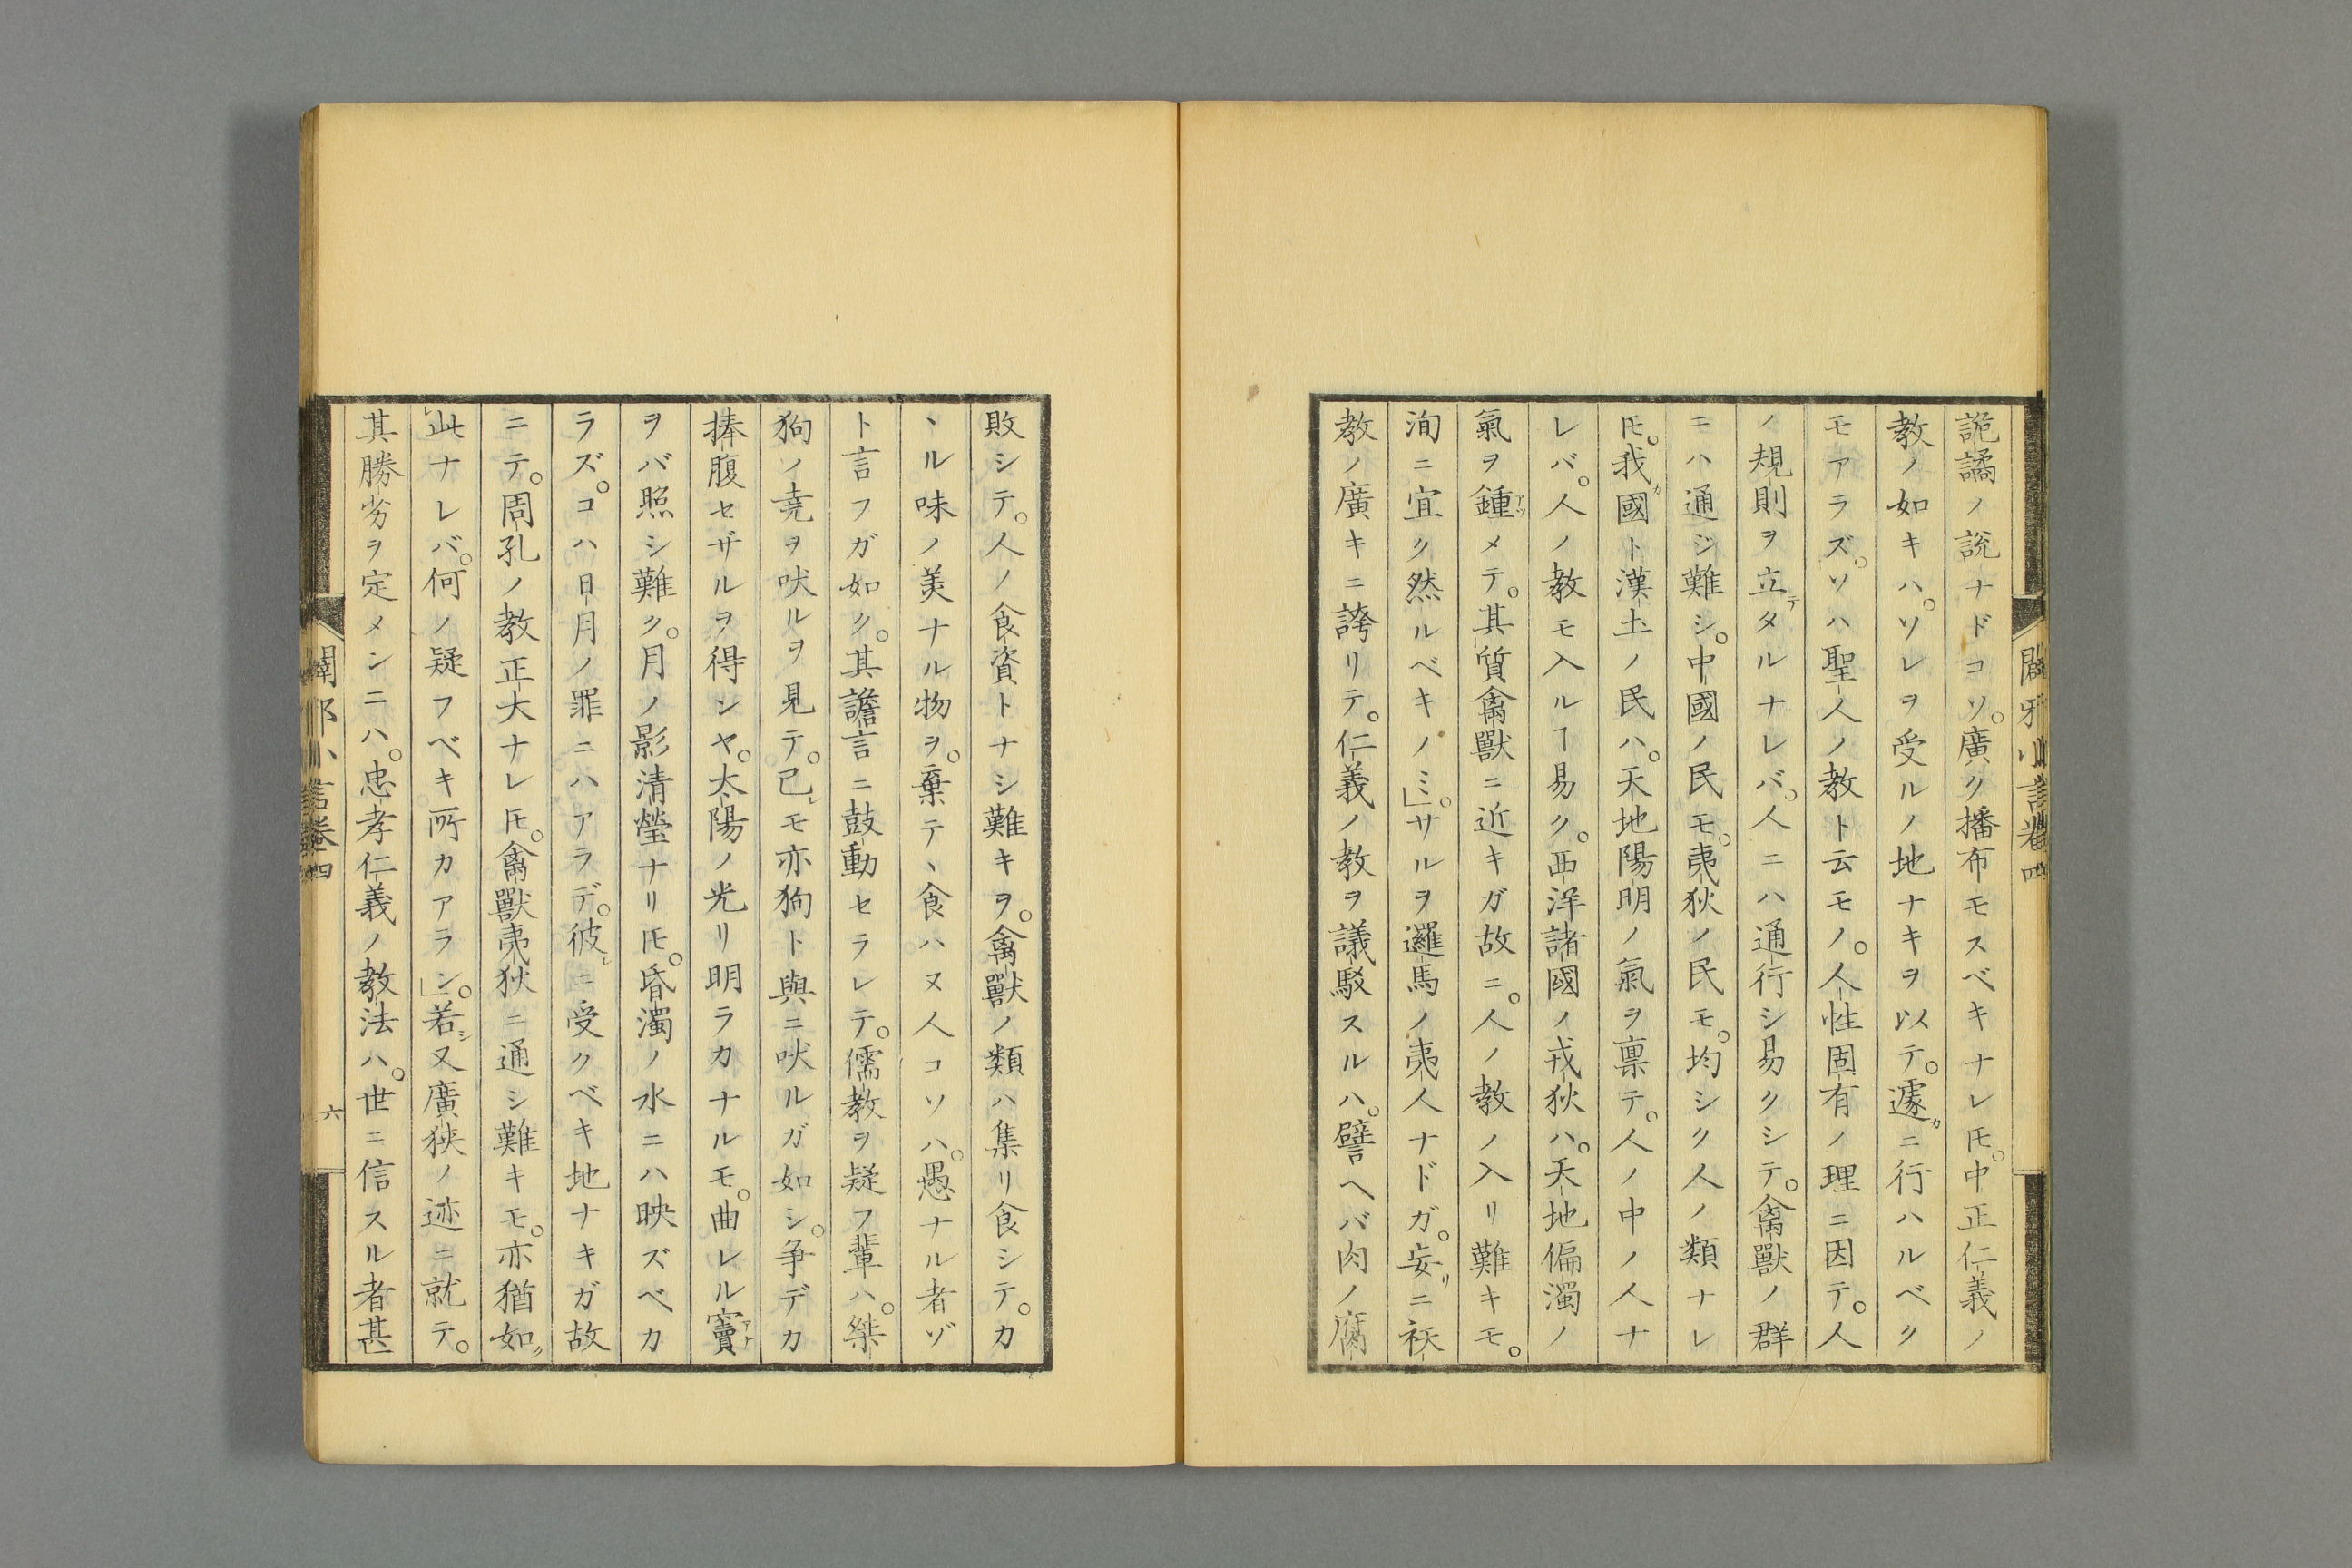 詭譎ノ說ナドコソ。廣ク播布モスベキナレ𪜈。中正仁義ノ
教ノ如キハ。ソレヲ受ルノ地ナキヲ以テ。遽カニ行ハルベク
モアラズ。ソハ聖人ノ教ト云モノ。人性固有ノ理ニ因テ。人
ノ規則ヲ立テタルナレバ。人ニハ通行シ易クシテ。禽獸ノ群
ニハ通ジ難シ。中國ノ民モ。夷狄ノ民モ。均シク人ノ類ナレ
𪜈。我カ國ト漢土ノ民ハ。天地陽明ノ氣ヲ禀テ。人ノ中ノ人ナ
レバ。人ノ教モ入ルヿ易ク。西洋諸國ノ戎狄ハ。天地偏濁ノ
氣ヲ鍾アツメテ。其質禽獸ニ近キガ故ニ。人ノ教ノ入リ難キモ。
洵ニ宜ク然ルベキノミ」。サルヲ邏馬ノ夷人ナドガ。妄リニ祆
教ノ廣キニ誇リテ。仁義ノ教ヲ議駁スルハ。譬ヘバ肉ノ腐
闢邪小言卷四
敗シテ。人ノ食資トナシ難キヲ。禽獸ノ類ハ集リ食シテ。カ
ヽル味ノ美ナル物ヲ。棄テヽ食ハヌ人コソハ。愚ナル者ゾ
ト言フガ如ク。其譫言ニ鼓動セラレテ。儒教ヲ疑フ輩ハ。桀
狗ノ堯ヲ吠ルヲ見テ。己レモ亦狗ト與ニ吠ルガ如シ。争デカ
捧腹セザルヲ得ンヤ。太陽ノ光リ明ラカナルモ。曲レル竇アナ
ヲバ照シ難ク。月ノ影清瑩ナリ𪜈。昏濁ノ水ニハ映ズベカ
ラズ。コハ日月ノ罪ニハアラデ。彼レニ受クベキ地ナキガ故
ニテ。周孔ノ教正大ナレ𪜈。禽獸夷狄ニ通シ難キモ。亦猶如ク
此ナレバ。何ノ疑フベキ所カアラン」。若シ又廣狹ノ迹ニ就テ。
其勝劣ヲ定メンニハ。忠孝仁義ノ教法ハ。世ニ信スル者甚
闢邪小言卷四
六